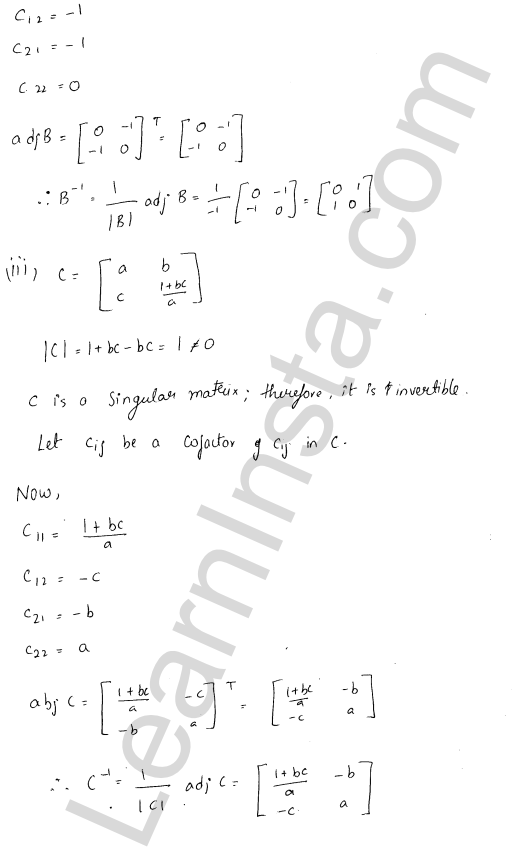 C12 = -1
C21 = -1
C.22 = 0
adjB = [0 -1; -1 0]^T = [0 -1; -1 0]
∴ B^-1 = 1/|B| adj B = 1/-1 [0 -1; -1 0] = [0 1; 1 0]
(iii) C = [a b; c (1+bc)/a]
|C| = 1+bc-bc = 1 ≠ 0
C is a singular matrix; therefore, it is invertible.
Let Cij be a cofactor of Cij in C.
Now,
C11 = (1+bc)/a
C12 = -c
C21 = -b
C22 = a
abj C = [(1+bc)/a -c; -b a]^T = [(1+bc)/a -b; -c a]
∴ C^-1 = 1/|C| adj C = [(1+bc)/a -b; -c a]
LearnInsta.com